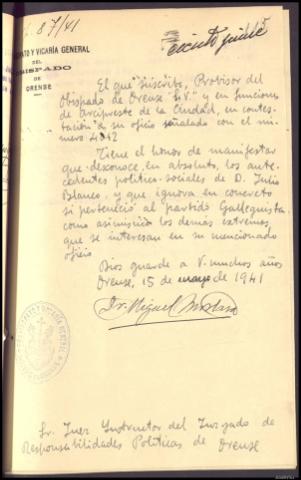 87/41
ATO Y VICARÍA GENERAL
DEL
OBISPADO
DE
ORENSE
El que suscribe, Provisor del
Obispado de Orense S.V. y en funciones
de Arcipreste de la Ciudad, en contes-
tación a su oficio señalado con el nú-
mero 4012
Tiene el honor de manifestar
que desconoce, en absoluto, los ante-
cedentes político-sociales de D. Julio
Blanco, y que ignora en concreto
si perteneció al partido Galleguista
como asimismo los demás extremos
que se interesan en su mencionado
oficio
Dios guarde a V. muchos años
Orense, 15 de mayo de 1941
Dr. Miguel
Sr. Juez Instructor del Juzgado de
Responsabilidades Políticas de Orense